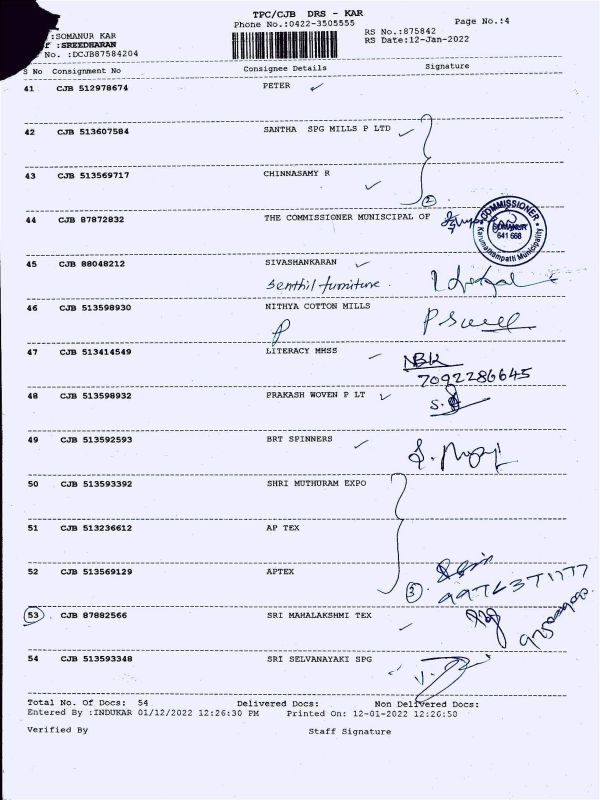 TPC/CJB DRS - KAR
Phone No.:0422-3505555
Page No.:4
:SOMANUR KAR
RS No.:875842
f :SREEDHARAN
RS Date:12-Jan-2022
No. :DCJB87584204
S No Consignment No Consignee Details Signature
41 CJB 512978674 PETER
42 CJB 513607584 SANTHA SPG MILLS P LTD
43 CJB 513569717 CHINNASAMY R
2
44 CJB 87872832 THE COMMISSIONER MUNISCIPAL OF
COMMISSIONER
SOMANUR
641 668
Karumathampatti Municipality
45 CJB 88048212 SIVASHANKARAN
Senthil furniture
46 CJB 513598930 NITHYA COTTON MILLS
47 CJB 513414549 LITERACY MHSS
NBK
7092286645
48 CJB 513598932 PRAKASH WOVEN P LT
49 CJB 513592593 BRT SPINNERS
50 CJB 513593392 SHRI MUTHURAM EXPO
51 CJB 513236612 AP TEX
52 CJB 513569129 APTEX
3
53 CJB 87882566 SRI MAHALAKSHMI TEX
54 CJB 513593348 SRI SELVANAYAKI SPG
Total No. Of Docs: 54 Delivered Docs: Non Delivered Docs:
Entered By :INDUKAR 01/12/2022 12:26:30 PM Printed On: 12-01-2022 12:26:50
Verified By Staff Signature